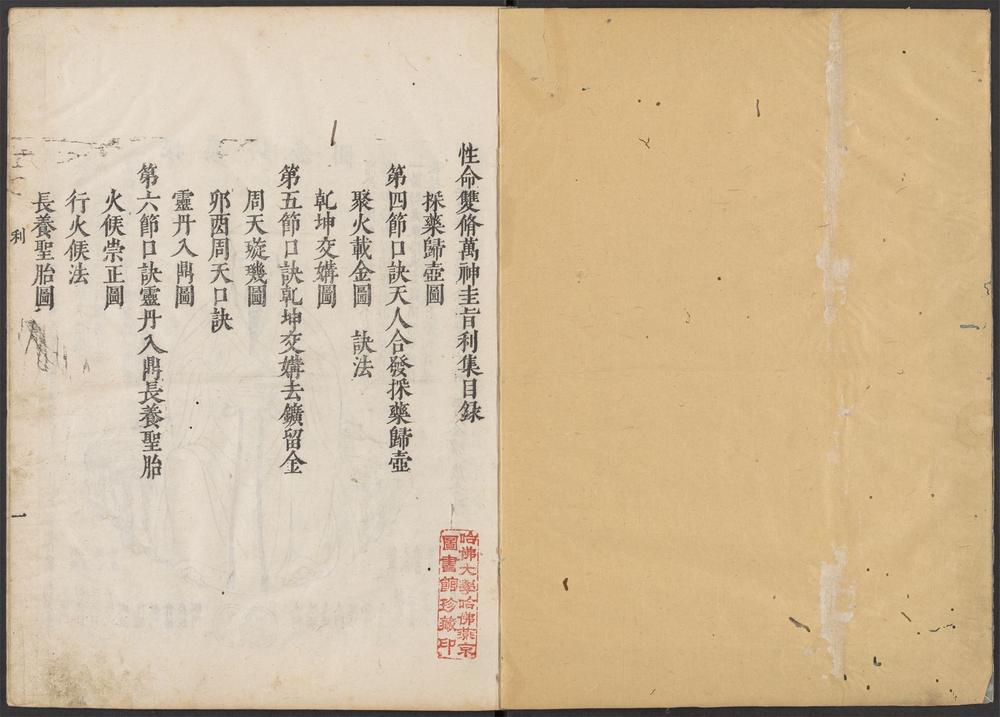 性命雙脩萬神圭旨利集目録
採藥歸壺圖
第四節口訣天人合發採藥歸壺
聚火載金圖　訣法
乾坤交媾圖
第五節口訣乾坤交媾去鑛留金
周天璇璣圖
卯酉周天口訣
靈丹入鼎圖
第六節口訣靈丹入鼎長養聖胎
火候崇正圖
行火候法
長養聖胎圖
利
一
哈佛大學哈佛燕京
圖書館珍藏印